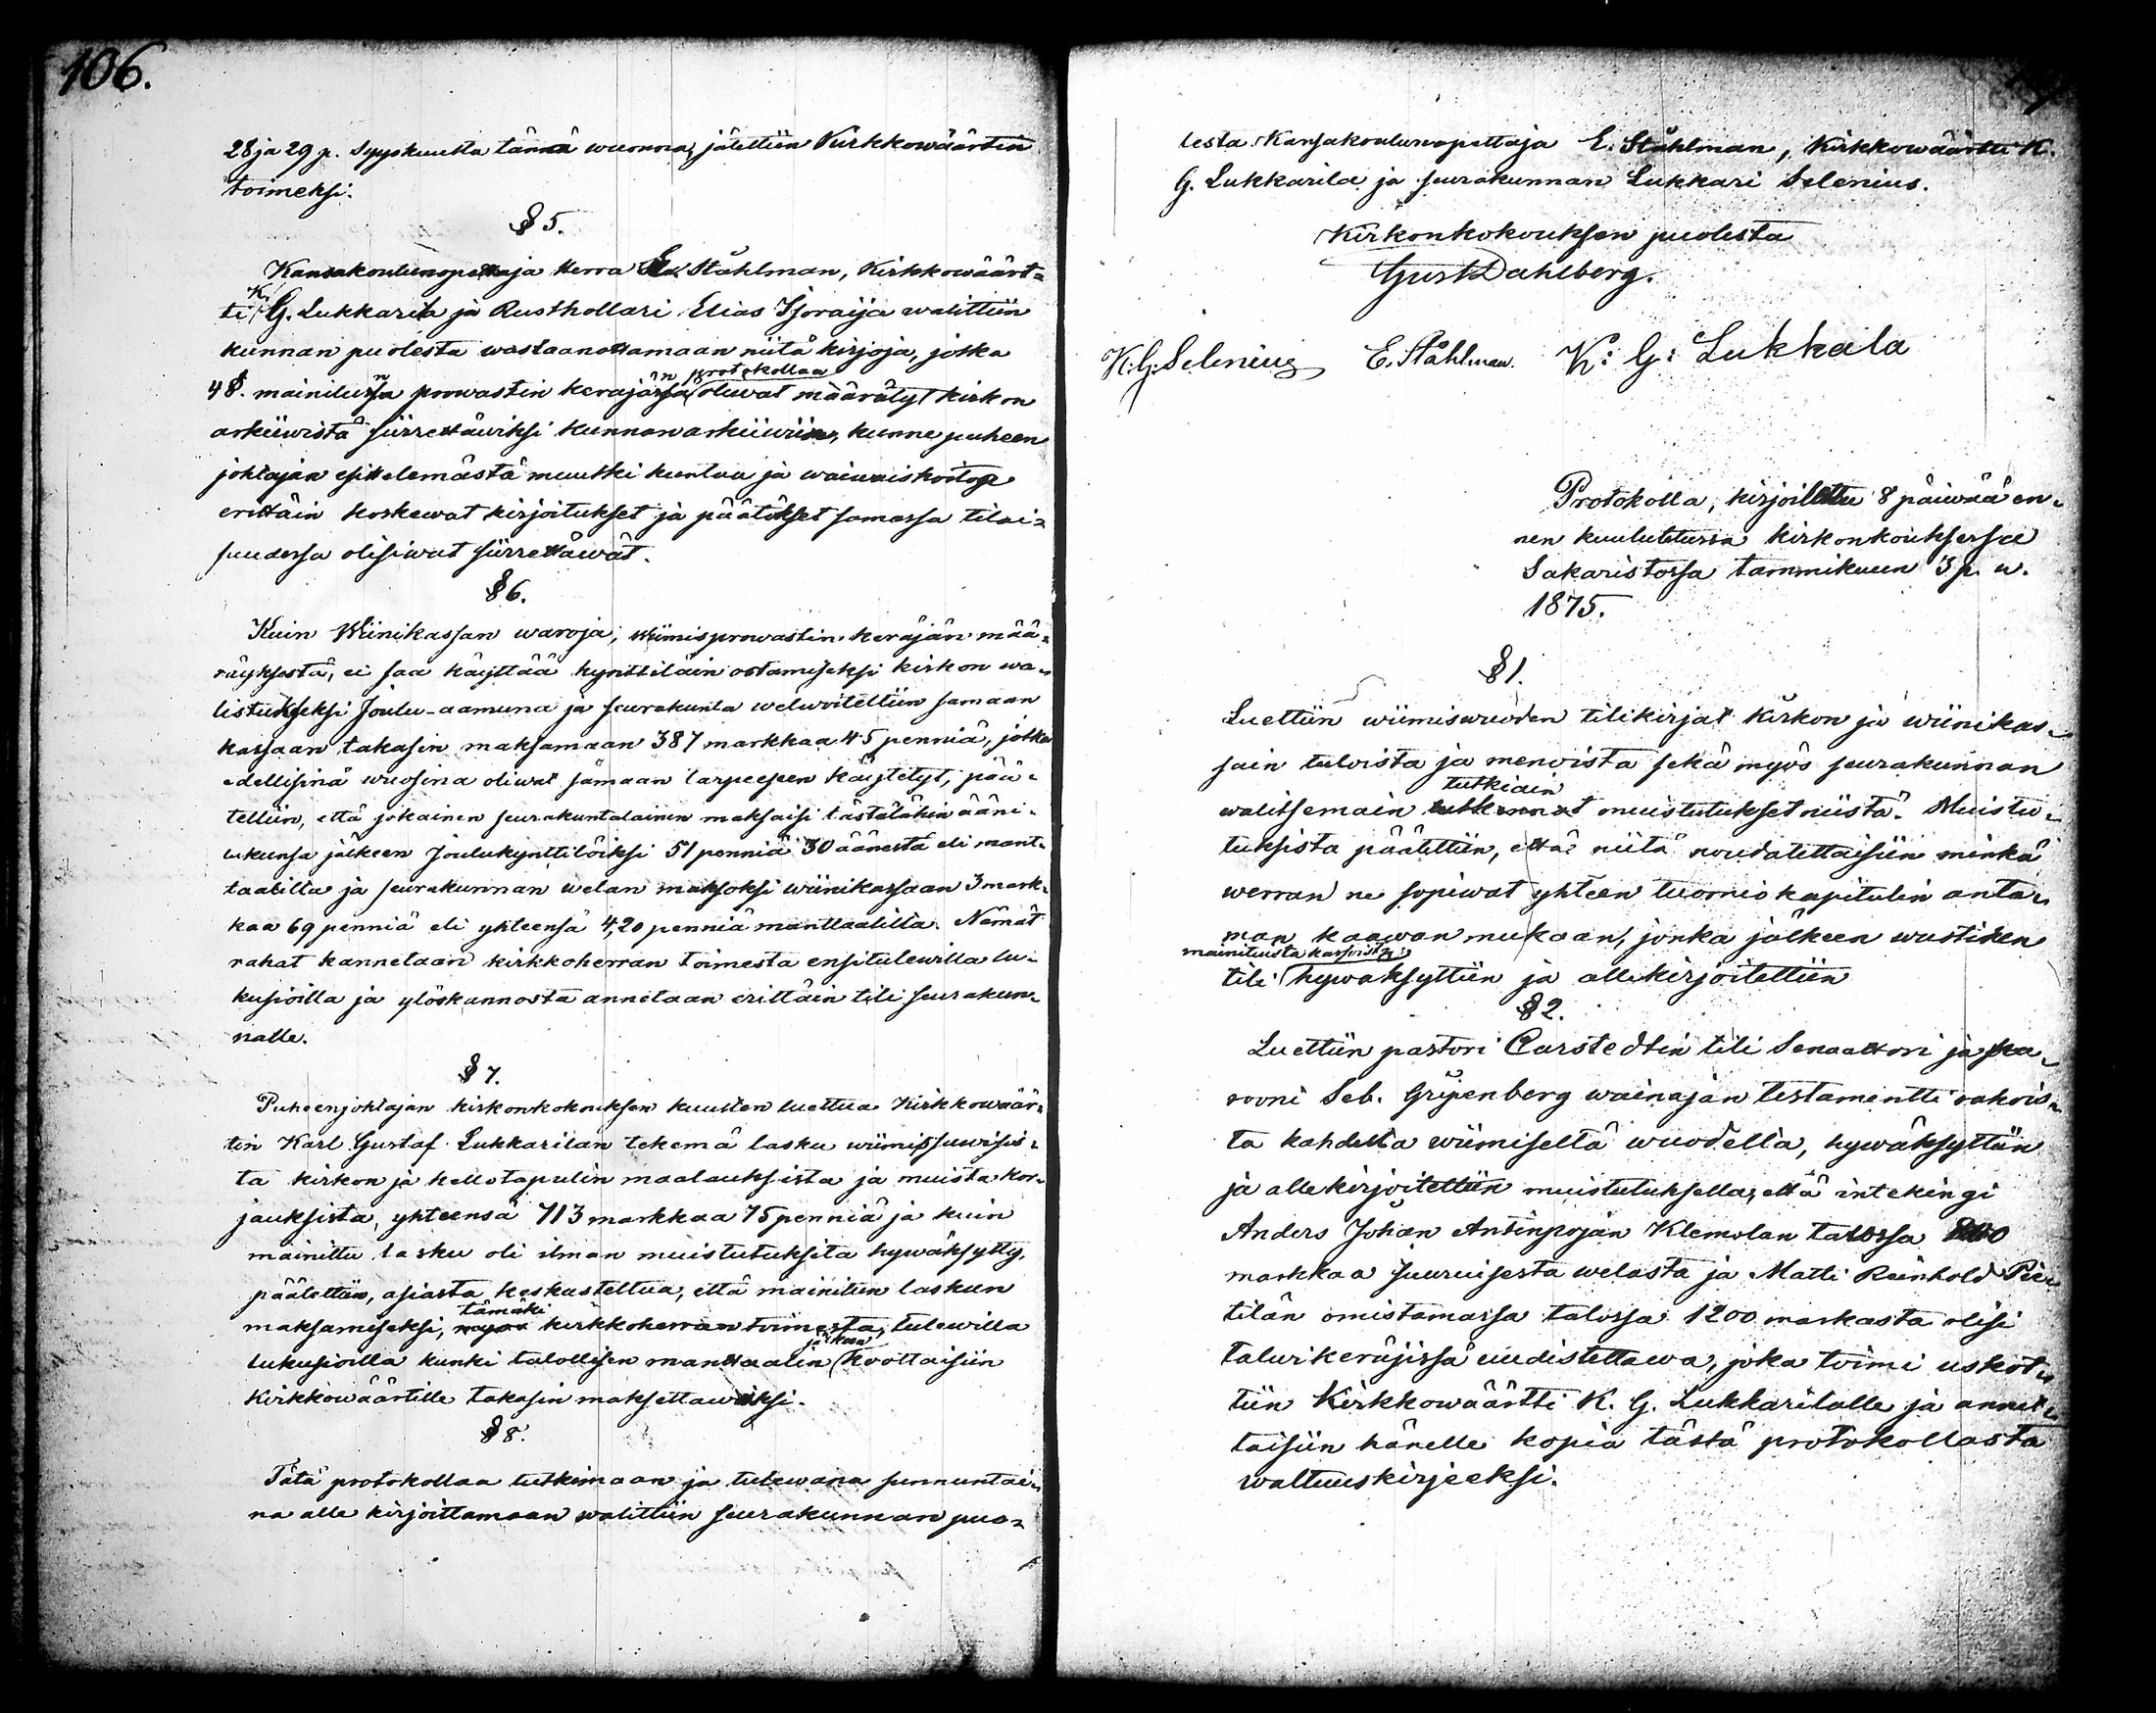 106.
28 ja 29 p. Syyskuusta tännä wuonna, jätettiin Kirkkowäärtin
toimeksi.
§ 5.
Kansakoulunopettaja HerraStåhlman, Kirkkowäärt-
ti K. G. Lukkarila ja Rusthollari Elias Isoraija walittiin
kunnan puolesta wastaanottamaan niitä kirjoja, jotka
4 §. mainitussa prowastin keräjän protokollaa oliwat määrätyt kirkon
arkiiwista siirrettäwiksi kunnan arkiiwiin, kunne puheen
johtajan esittelemästä muutki kuntaa ja waiwaishoitoa
erittäin koskewat kirjoitukset ja päätökset samassa tilai-
suudessa olisiwat siirrettäwät.
§ 6.
Kuin Wiinikassan waroja, wiimis prowastin keräjän mää-
räyksestä, ei saa käyttää kynttiläin ostamiseksi kirkon wa-
listukseksi Joulu-aamuna ja seurakunta welwoitettiin samaan
kassaan takasin maksamaan 387 markkaa 45 penniä, jotka
edellisinä wuosina oliwat samaan tarpeesen käytetyt, pää-
tettiin, että jokainen seurakuntalainen maksaisi tästälähin ääni-
lukunsa jälkeen Joulukynttilöiksi 51 penniä 30 äänestä eli mant-
taalilla ja seurakunnan welan maksoksi wiinikassaan 3 mark-
kaa 69 penniä eli yhteensä 4,20 penniä manttaalilta. Nämät
rahat kannetaan kirkkoherran toimesta ensitulewilla lu-
kusioilla ja ylöskannosta annetaan erittäin tili seurakun-
nalle.
§ 7.
Puheenjohtajan kirkonkokouksen kuulten luettua Kirkkowäär-
tin Karl Gustaf Lukkarilan tekemä lasku wiimissuwisis-
ta kirkon ja kellotapulin maalauksista ja muista kor-
jauksista, yhteensä 713 markkaa 75 penniä ja kuin
mainittu lasku oli ilman muistutuksita hywäksytty,
päätettiin, asiasta keskusteltua, että mainitun laskun
maksamiseksi, tämäki kirkkoherran toimesta, tulewilla
lukusioilla kunki talollisen manttaalin jälkeen koottaisiin
Kirkkowäärtille takasin maksettawaksi.
§ 8.
Tätä protokollaa tutkimaan ja tulewana sunnuntai-
na alle kirjoittamaan walittiin seurakunnan puo-
lesta Kansakoulunopettaja E. Ståhlman, Kirkkowäärtti K.
G. Lukkarila ja seurakunnan Lukkari Selenius.
Kirkonkokouksen puolesta
Gust Dahlberg.
K. G. Selenius E. Ståhlman. K: G: Lukkala
Protokolla, kirjoitettu 8 päiwää en-
nen kuulutetussa kirkonkouksessa
Sakaristossa tammikuun 3 p. w.
1875.
§ 1.
Luettiin wiimiswuoden tilikirjat kirkon ja wiinikas-
sain tuloista ja menoista sekä myös seurakunnan
walitsemain tutkiain muistutukset niistä. Muistu-
tuksista päätettiin, että niitä noudatettaisiin minkä
werran ne sopiwat yhteen tuomiokapitulin anta-
man kaawan mukaan, jonka jälkeen wastiken
tili mainituista kassoista hywäksyttiin ja allekirjoitettiin
§ 2.
Luettiin pastori Carstedtin tili Senaattori ja pa-
rooni Seb. Gripenberg wainajan testamentti rahois-
ta kahdelta wiimiseltä wuodelta, hywäksyttiin
ja allekirjoitettiin muistutuksella, että intekingi
Anders Johan Antinpojan Klemolan talossa
markkaa suuruisesta welasta ja Matti Reinhold Pie-
tilän omistamassa talossa 1200 markasta olisi
talwikeräjissä uudistettawa, joka toimi uskot-
tiin Kirkkowäärtti K. G. Lukkarilalle ja annet-
taisiin hänelle kopia tästä protokollasta
waltuuskirjeeksi.